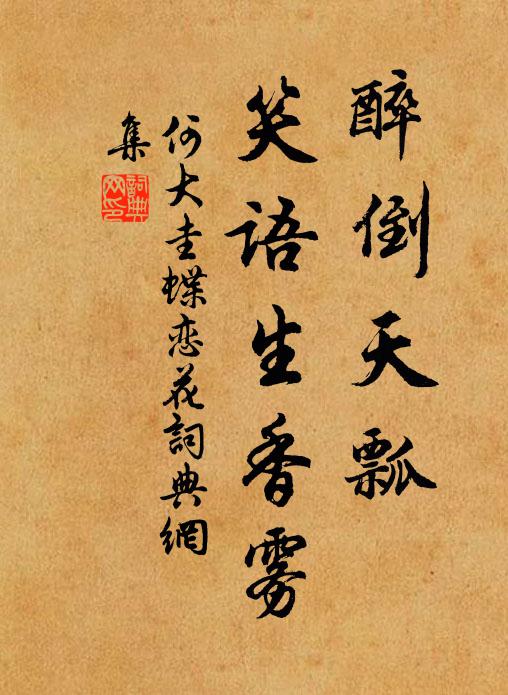 醉倒天瓢
笑语生香雾
何大圭蝶恋花词典網
集
詞典
网印